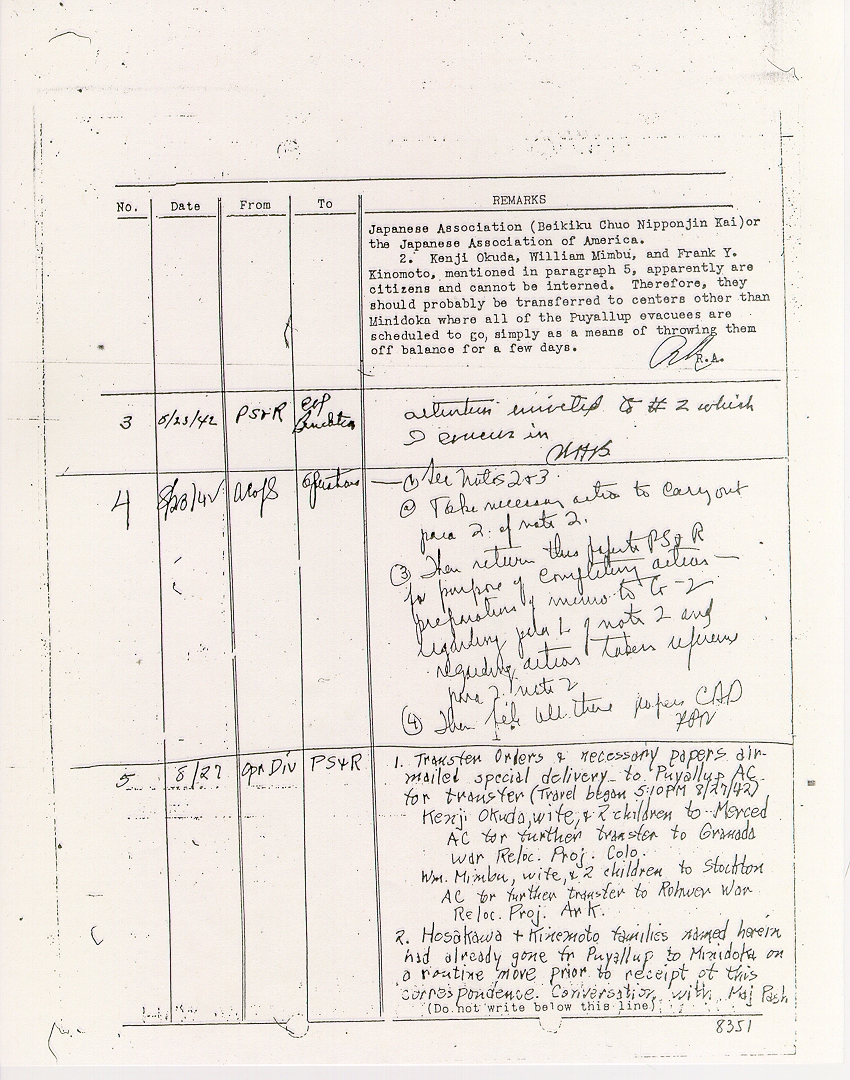 No. Date From To REMARKS
Japanese Association (Beikiku Chuo Nipponjin Kai)or
the Japanese Association of America.
2. Kenji Okuda, William Mimbu, and Frank Y.
Kinomoto, mentioned in paragraph 5, apparently are
citizens and cannot be interned. Therefore, they
should probably be transferred to centers other than
Minidoka where all of the Puyallup evacuees are
scheduled to go, simply as a means of throwing them
off balance for a few days.
R.A.
3 8/23/42 PS&R attention invited to # 2 which
I concur in
4 AC of S Operations ① See Notes 2 & 3.
② Take necessary action to carry out
para 2. of note 2.
③ Then return this papers to PS & R
for purpose of completing action —
preparation of memo to G-2
regarding para 1 of note 2 and
regarding action taken reference
para 2. note 2
④ Then file all these papers CAD
5 8/27 Opr Div PS&R 1. Transfer Orders & necessary papers air-
mailed special delivery to Puyallup AC
for transfer (Travel began 5:10PM 8/27/42)
Kenji Okuda, wife, & 2 children to Merced
AC for further transfer to Granada
War Reloc. Proj. Colo.
Wm. Mimbu, wife, & 2 children to Stockton
AC for further transfer to Rohwer War
Reloc. Proj. Ark.
2. Hosakawa + Kinemoto families named herein
had already gone fr Puyallup to Minidoka on
a routine move prior to receipt of this
correspondence. Conversation with Maj Pash
(Do not write below this line)
8351